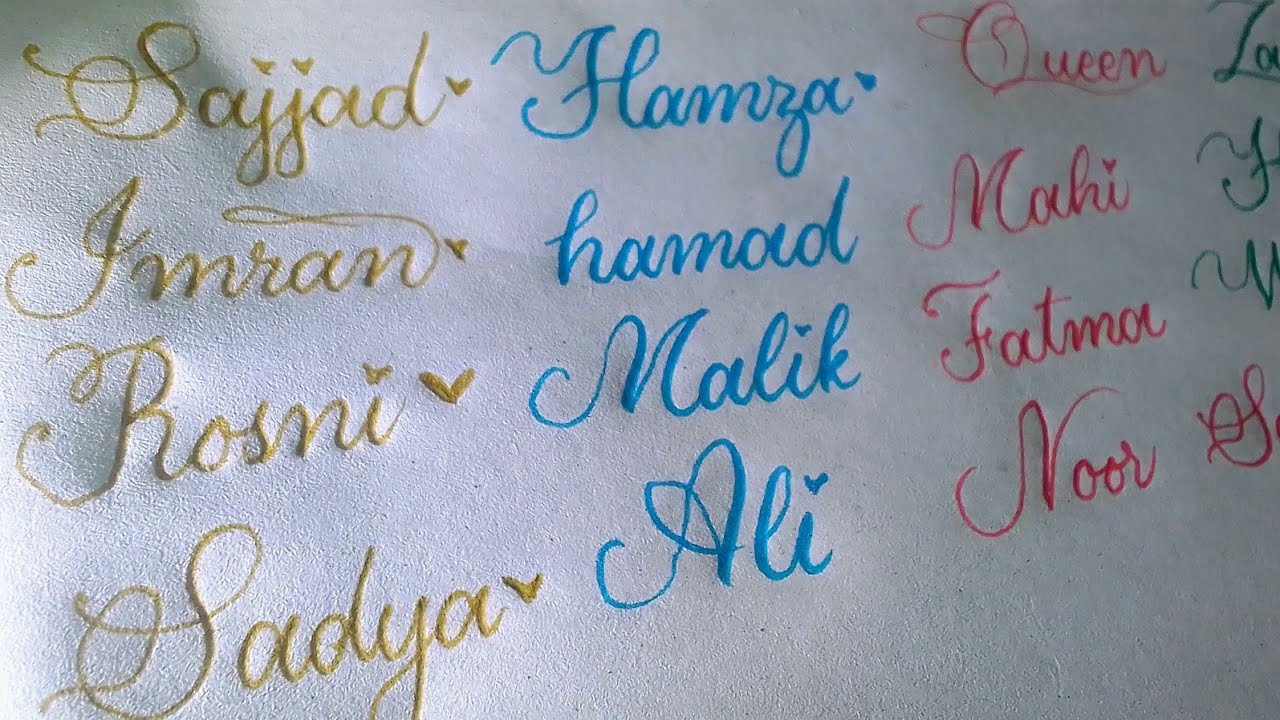 Sajjad
Imran
Rosni
Sadya
Hamza
hamad
Malik
Ali
Queen
Mahi
Fatma
Noor